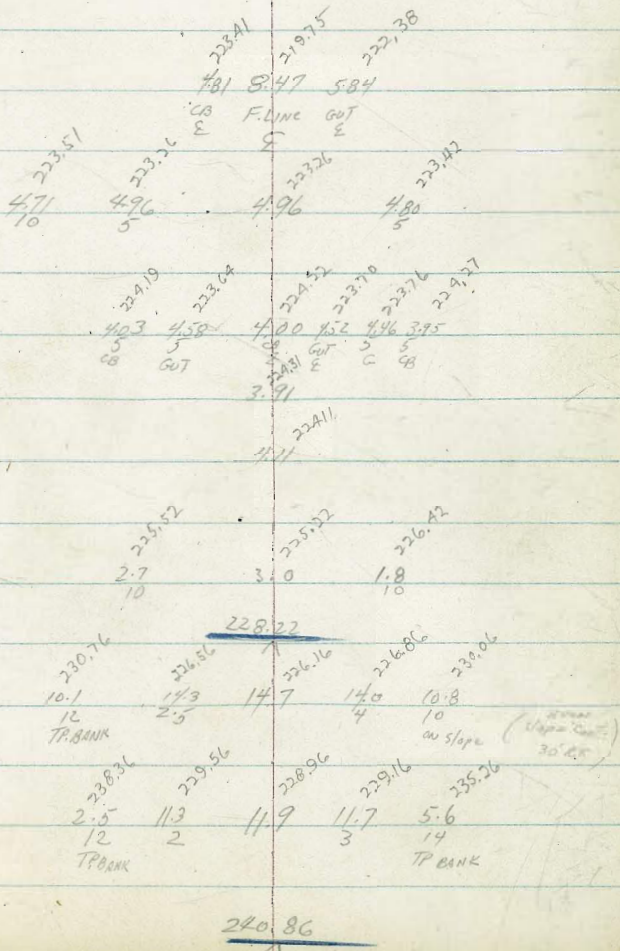 223.41 219.75 222.38
4.81 8.47 5.84
CB F.LINE GUT
£ £ £
223.51 223.26 223.26 223.42
4.71 4.96 4.96 4.80
10 5 5
224.19 223.64 224.22 223.70 223.76 224.27
4.03 4.58 4.00 4.52 4.46 3.95
5 5 CB GUT 5 5
CB GUT £ G CB
224.31
3.91
224.11
4.11
225.52 225.22 226.42
2.7 3.0 1.8
10 10
228.22
230.76 226.56 226.16 226.86 230.06
10.1 14.3 14.7 14.0 10.8
12 2.5 4 10
TP.BANK ON Slope
30' RT
238.36 229.56 228.96 229.16 235.26
2.5 11.3 11.9 11.7 5.6
12 2 3 14
TP BANK TP BANK
240.86